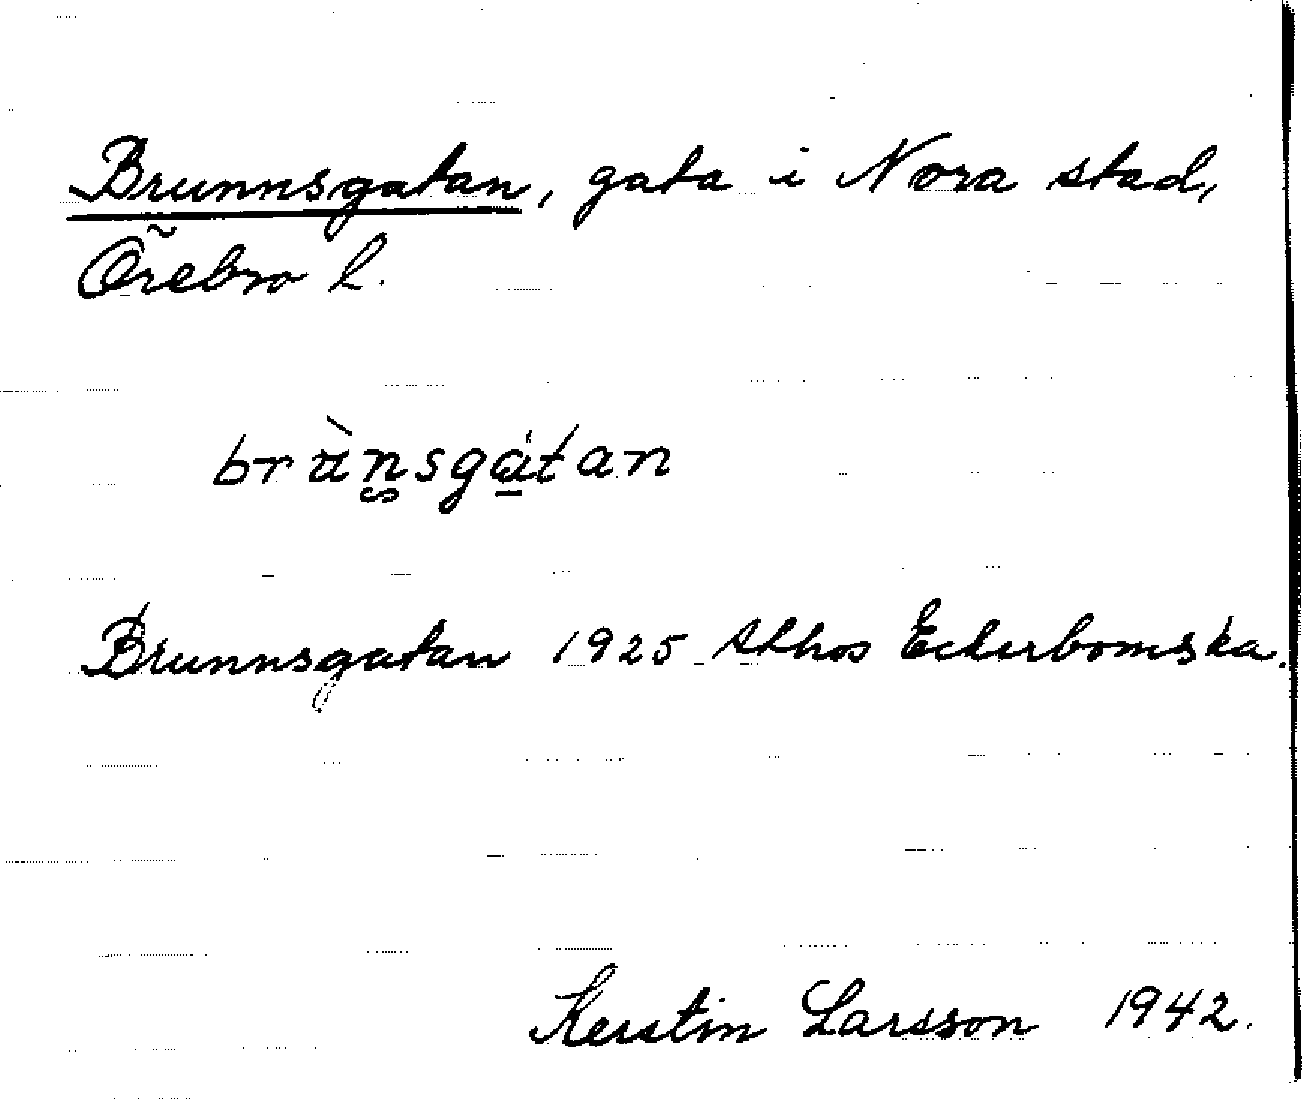 Brunnsgatan, gata i Nora stad,
Örebro l.
brùn̰sgá̱tan
Brunnsgatan 1925 Athos Eckerbomska.
Kerstin Larsson 1942.